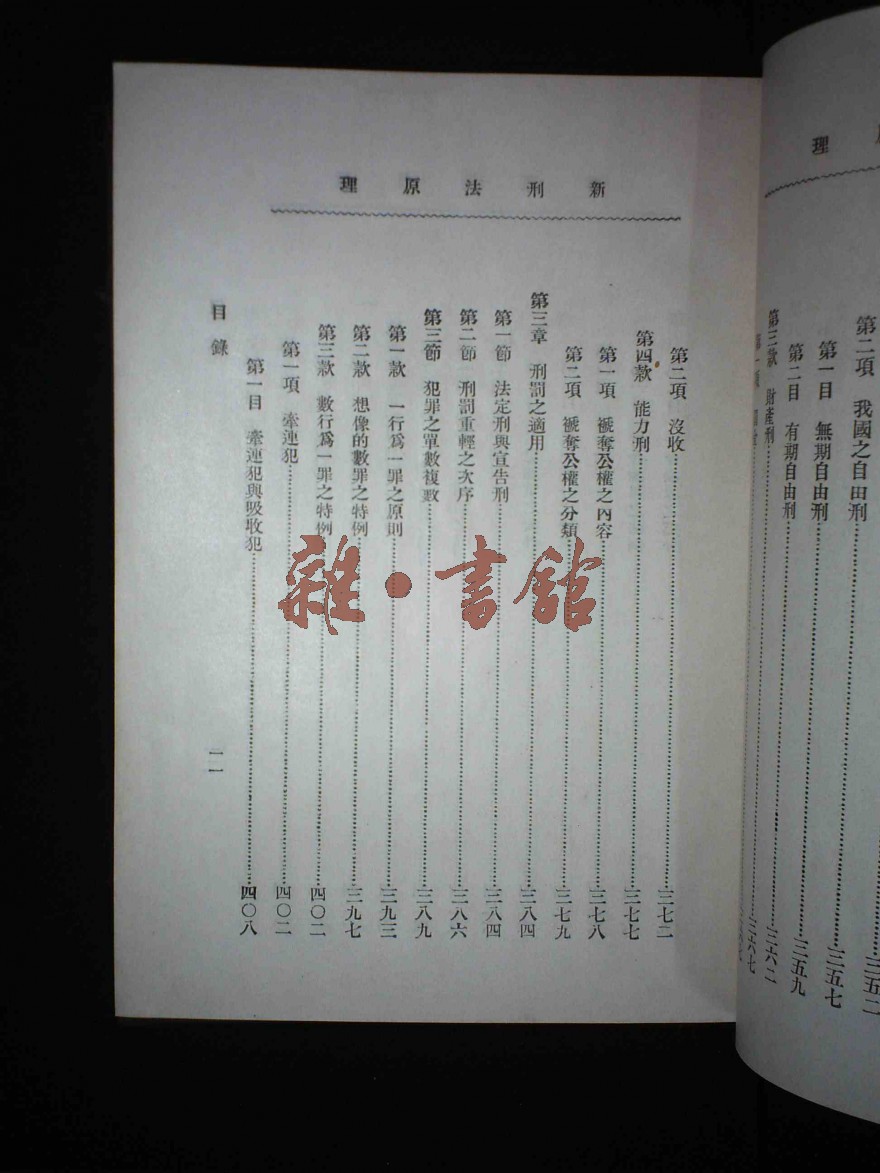 理
第二項　我國之自由刑……三五二
第一目　無期自由刑……三五七
第二目　有期自由刑……三五九
第三款　財產刑……三六二
三六七
新刑法原理
第二項　沒收……三七二
第四款　能力刑……三七七
第一項　褫奪公權之內容……三七八
第二項　褫奪公權之分類……三七九
第三章　刑罰之適用……三八四
第一節　法定刑與宣告刑……三八四
第二節　刑罰重輕之次序……三八六
第三節　犯罪之單數複數……三八九
第一款　一行爲一罪之原則……三九三
第二款　想像的數罪之特例……三九七
第三款　數行爲一罪之特例……四〇二
第一項　牽連犯……四〇二
第一目　牽連犯與吸收犯……四〇八
目錄
一一
雜·書館